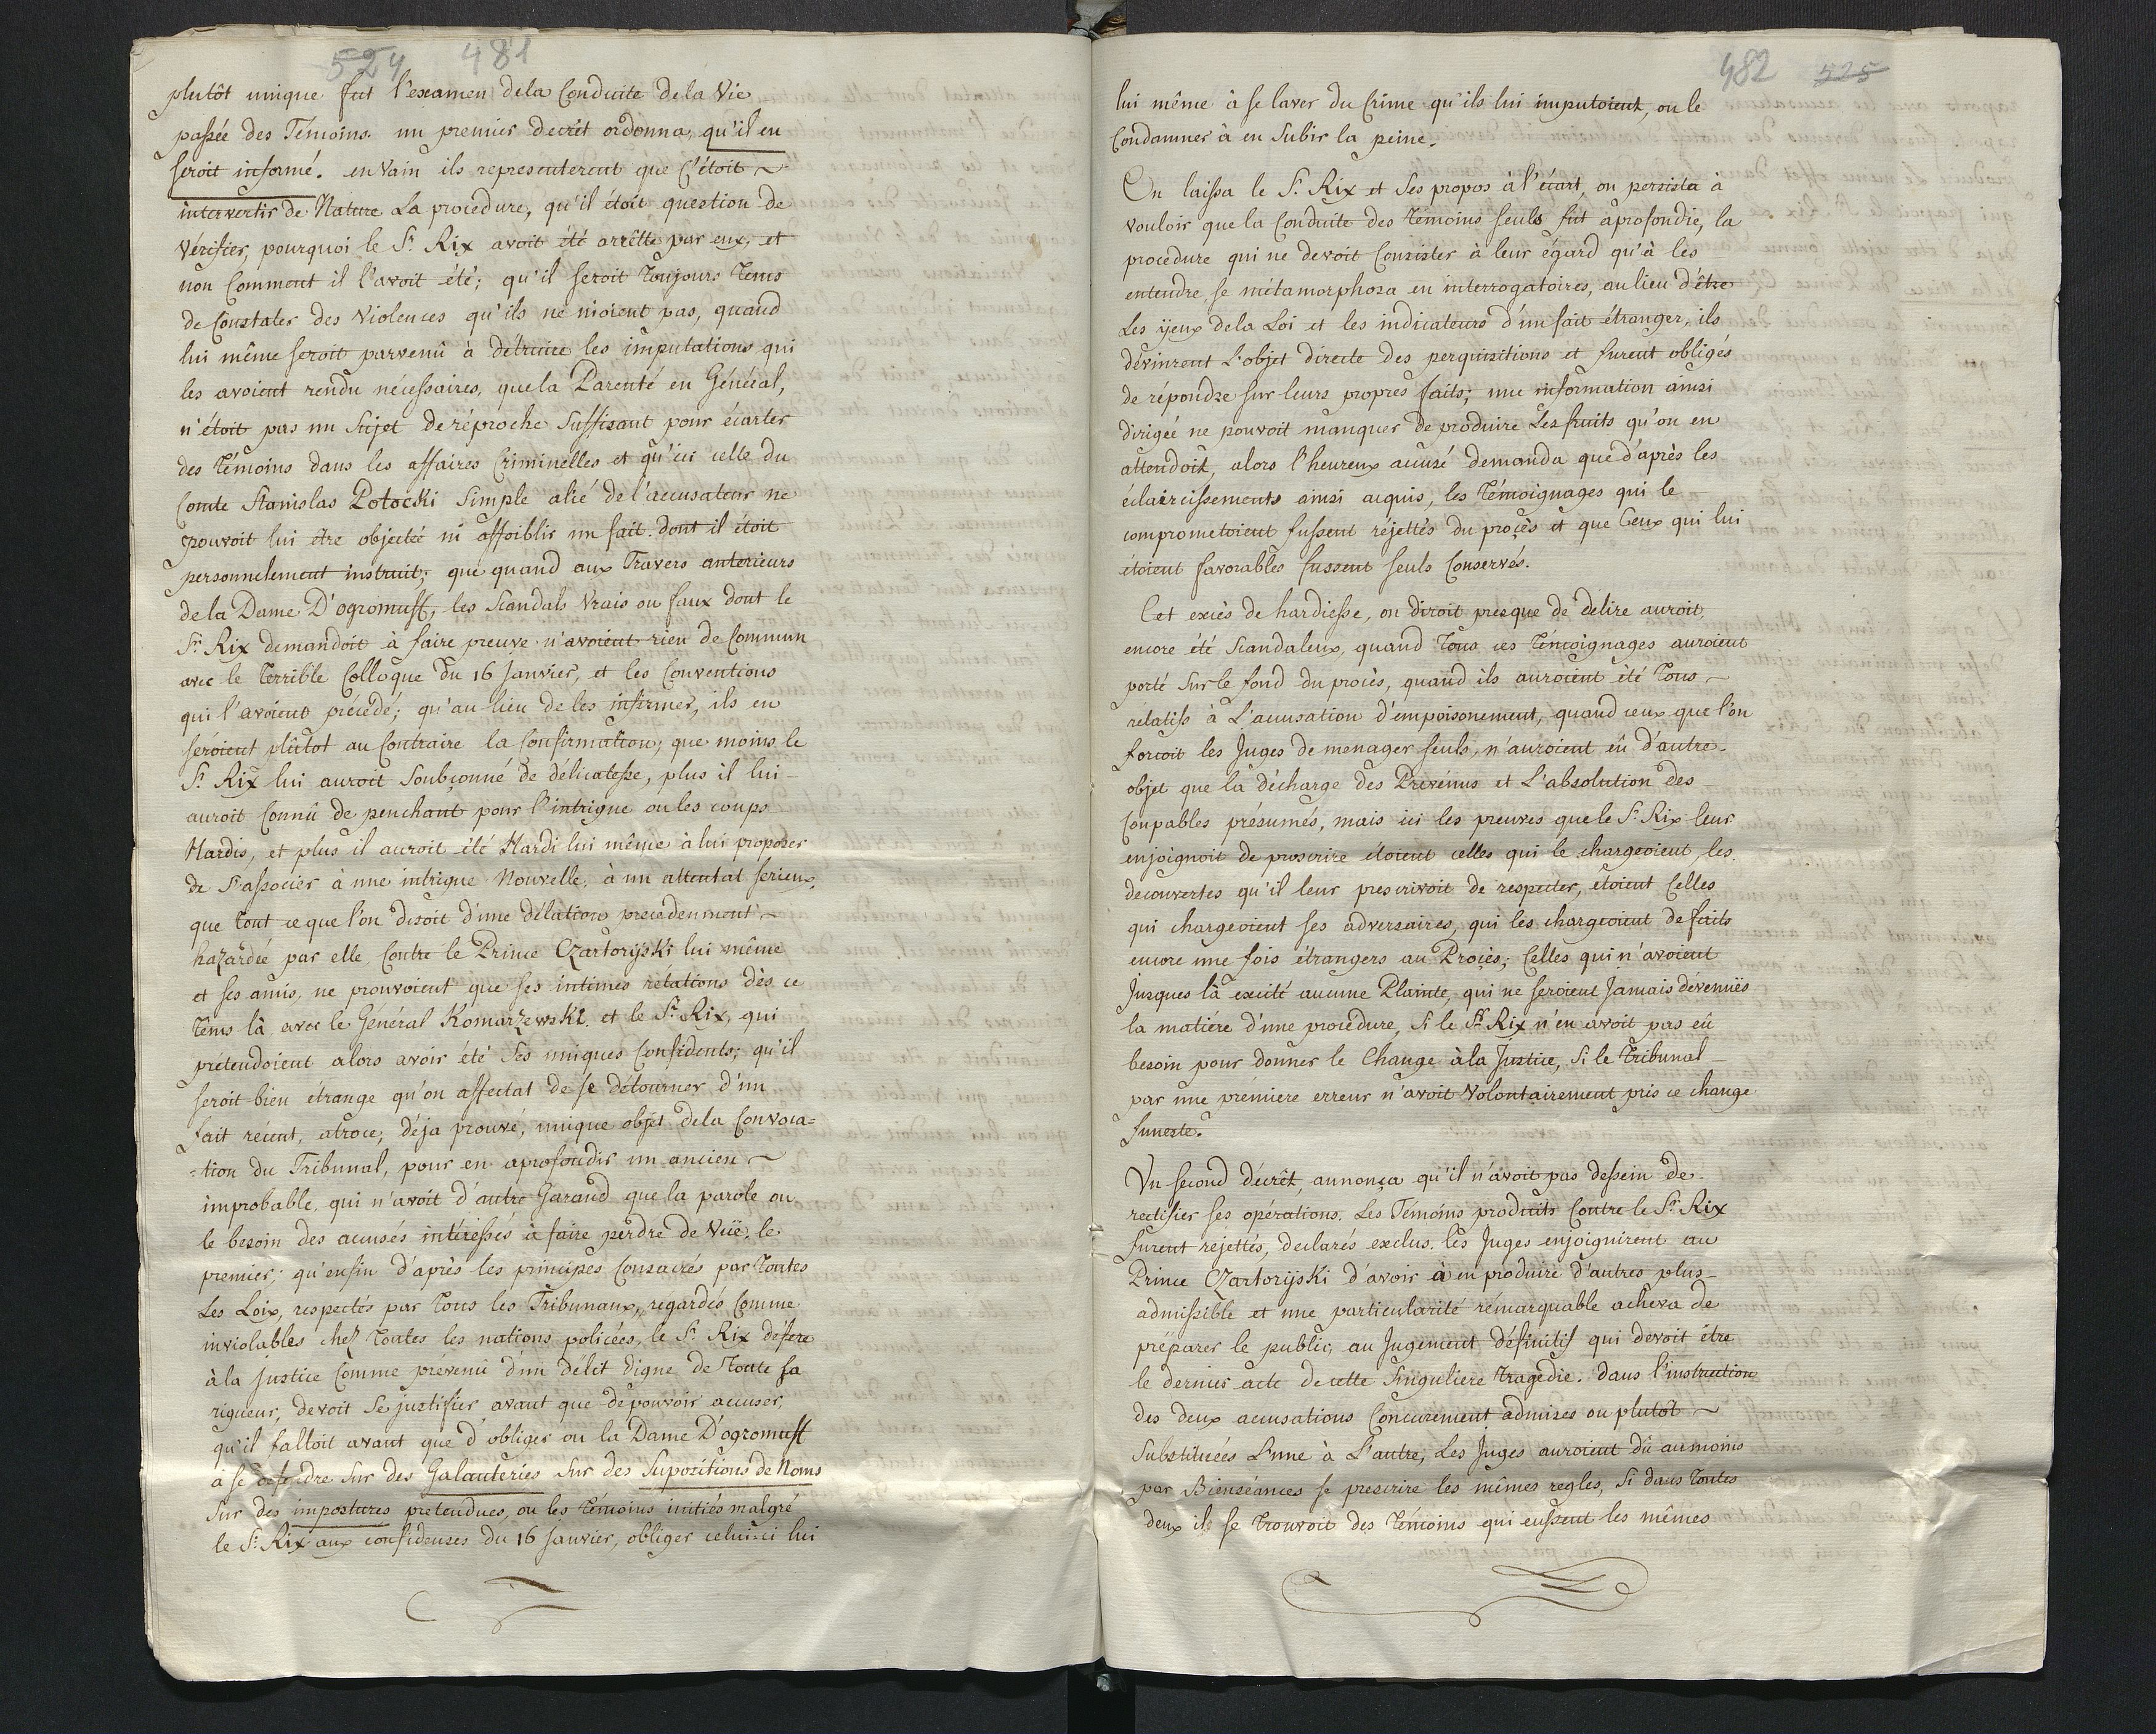 524 481
plutôt unique fut l'examen dela Conduite dela Vie
passée des Témoins. un premier decrét ordonna, qu'il en
seroit informé. envain ils representerent que C'étoit ~
intervertir de Nature La procedure, qu'il étoit question de
Vérifier, pourquoi le Sr. Rix avoit été arrêtté par eux, et
non Comment il l'avoit été; qu'il seroit Toujours Tems
de Constater des Violences qu'ils ne nioient pas, quand
lui même seroit parvenû à détruire les imputations qui
les avoient rendu nécessaires, que la Parenté en Général,
n'étoit pas un Sujet de réproche Suffisant pour écarter
des Témoins dans les affaires Criminelles et qu'ici celle du
Comte Stanislas Potocki Simple alié de l'accusateur ne
pouvoit lui être objectée ni affoiblir un fait dont il étoit
personnelement instruit; que quand aux Travers anterieurs
de la Dame D'ogromuff, les Scandals Vrais ou faux dont le
Sr. Rix demandoit à faire preuve n'avoient rien de Commun
avec le Terrible Colloque du 16 Janvier, et les Conventions
qui l'avoient précédé; qu'au lieu de les infirmer, ils en
seroient plûtot au Contraire la Confirmation; que moins le
Sr. Rix lui auroit Soubçonné de délicatesse, plus il lui -
auroit Connû de penchant pour l'intrigue ou les coups
Hardis, et plus il auroit été Hardi lui même à lui proposer
de S'associer à une intrigue Nouvelle, à un attentat serieux,
que Tout ce que l'on disoit d'une délation precedenment ~
hazardée par elle Contre le Prince Czartoryski lui même
et ses amis, ne prouvoient que ses intimes relations dès ce
Tems là avec le Général Komarzewski et le Sr. Rix, qui
prétendoient alors avoir été Ses uniques Confidents; qu'il
seroit bien étrange qu'on affectat de se détourner d'un
fait récent, atroce, déja prouvé, unique objet dela Convoca=
=tion du Tribunal, pour en aprofondir un ancien ~
improbable, qui n'avoit d'autre Garand que la parole ou
le besoin des accusés intéressés à faire perdre de Vüe, le
premier; qu'enfin d'après les principes Consacrés par Toutes
Les Loix, respectés par Tous les Tribunaux, regardés Comme
inviolables chez Toutes les nations policées, le Sr. Rix défere
à la justice Comme prévenû d'un délit digne de Toute sa
rigueur, devoit Se justifier avant que de pouvoir accuser,
qu'il falloit avant que d'obliger ou la Dame D'ogromuff
à se défendre Sur des Galanteries Sur des Supositions de Noms
Sur des impostures pretendues, ou les Témoins initiés malgré
le Sr. Rix aux confidenses du 16 Janvier, obliger celui-ci lui
482 525
lui même à se laver du Crime qu'ils lui imputoient, ou le
Condamner à en Subir la peine.
On laissa le Sr. Rix et Ses propos à l'écart, on persista à
vouloir que la Conduite des Témoins Seuls fut aprofondie, la
procedure qui ne devoit Consister à leur égard qu'à les
entendre, se métamorphosa en interrogatoires, au lieu d'être
Les yeux dela Loi et les indicateurs d'un fait étranger, ils
dévinrent L'objet directe des perquisitions et furent obligés
de répondre sur leurs propres faits; une information ainsi
dirigée ne pouvoit manquer de produire Les fruits qu'on en
attendoit, alors l'heureux accusé demanda que d'après les
éclaircissements ainsi acquis, les Témoignages qui le
comprometoient fussent réjettés du proçès et que Ceux qui lui
étoient favorables fussent Seuls Conservés.
Cet excès de hardiesse, on diroit presque de delire auroit
encore été Scandaleux, quand Tous ces Témoignages auroient
porté Sur le fond du procès, quand ils auroient été Tous ~
rélatifs à L'accusation d'empoisonement, quand ceux que l'on
forcoit les Juges de menager Seuls, n'auroient eû d'autre -
objet que la décharge des Prévénus et L'absolution des -
Coupables présumés, mais ici les preuves que le Sr. Rix leur
enjoignoit de proscrire étoient celles qui le chargeoient, les
decouvertes qu'il leur prescrivoit de respecter, étoient Celles
qui chargeoient ses adversaires, qui les chargeoient de faits
encore une fois étrangers au Proçès; Celles qui n'avoient
Jusques là excité aucune Plainte, qui ne seroient Jamais dévenuës
la matiére d'une procedure, Si le Sr. Rix n'en avoit pas eû
besoin pour donner le Change à la Justice, Si le Tribunal -
par une prémiere erreur n'avoit Volontairement pris ce change
funeste.
Un second décrêt, annonça qu'il n'avoit pas dessein de -
rectifier ses opérations. Les Témoins produits Contre le Sr. Rix
furent rejettés, declarés exclus. les Juges enjoignirent au
Prince Czartoryski d'avoir à en produire d'autres plus -
admissible et une particularité rémarquable acheva de
préparer le public, au Jugement définitif qui devoit être
le dernier acte de cette Singuliere Tragédie. dans l'instruction
des deux accusations Concurement admises ou plutôt ~
Substituées L'une à L'autre, Les Juges auroient dû au moins
par Bienséances se prescrire les mêmes regles, Si dans Toutes
deux ils se Trouvoit des Témoins qui eussent les mêmes